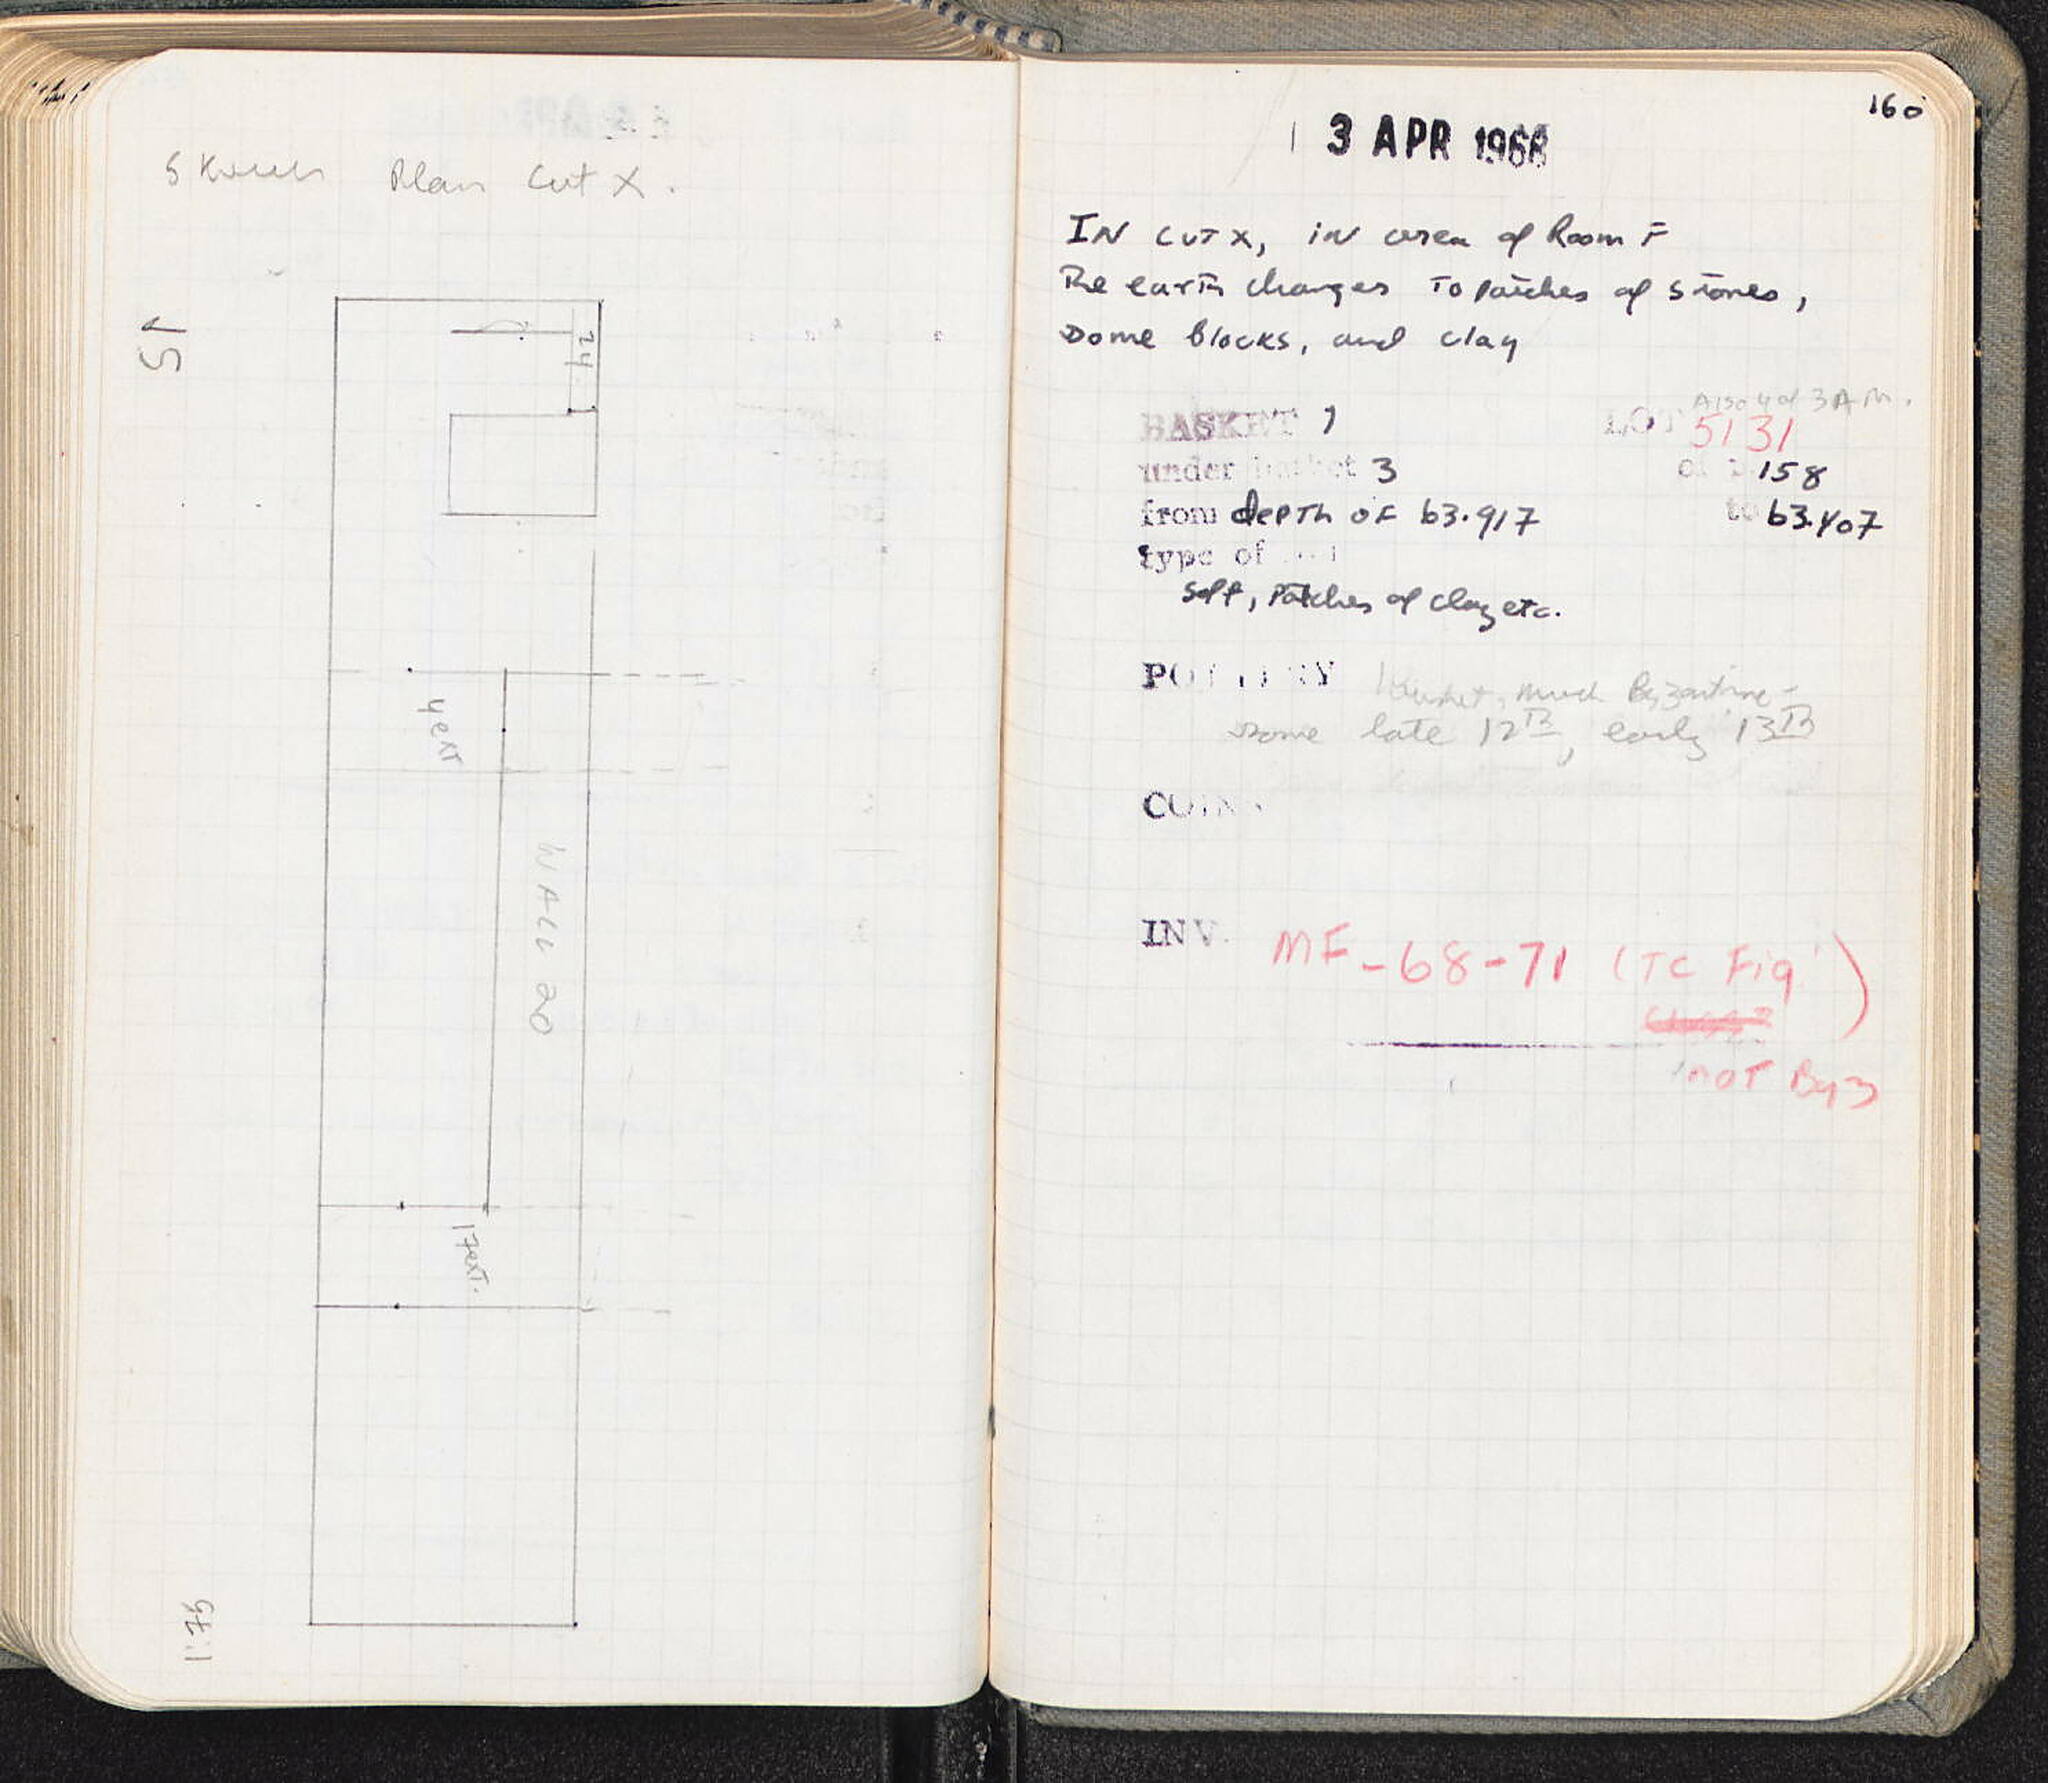 Sketch Plan Cut X.
15
24
4 ext
WALL 20
17 ext.
1:75
160
3 APR 1968
IN CUT X, IN area of Room F
The earth changes to patches of stones,
some blocks, and clay
Also 4 of 3 A.M.
BASKET 1 LOT 5131
under basket 3 of p 158
from depth of 63.917 to 63.407
type of
soft, patches of clay etc.
POTTERY 1 basket, much Byzantine -
some late 12th, early 13th
COINS
INV. MF-68-71 (TC Fig )
not Byz